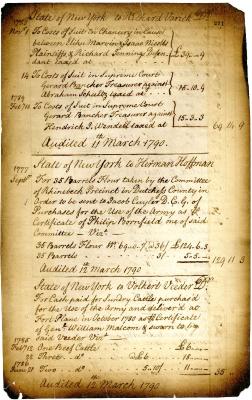 State of New York to Richard Varick Dr
271
Nov 1 To Costs of Suit in Chancery in Cause
between Elihu Marvin & Isaac Nicoll
Plaintiffs & Richard Jennings Defen-
dant taxed at
14 To Costs of Suit in Supreme Court
Gerard Bancker Treasurer against
Abraham Schultz taxed at 15.10.9
1789
To Costs of Suit in Supreme Court
Gerard Bancker Treasurer against
Hendrick J. Wendell taxed at 15.3.3
Audited 11 March 1790.
State of New York to Herman Hoffman
1777
Sept For 35 Barrels Flour taken by the Committee
of Rhinebeck Precinct in Dutchess County in
Order to be sent to Jacob Cuyler D.C.G. of
Purchases for the Use of the Army as
Certificate of Philip Bornfield one of said
Committee
35 Barrels Flour £124.6.3
35 Barrels 5.5.
129 11 3
Audited 12 March 1790
State of New York to Volkert Veeder Dr
For Cash paid for Sundry Cattle purchased
for the Use of the Army and deliver'd at
Fort Plane in October 1780 as Certificate
of Genl William Malcom & sworn to by
said Veeder
One Beef Cattle £6
22 Three do @£6 18
21 Two do 5.10/ 11
35
Audited 12 March 1790